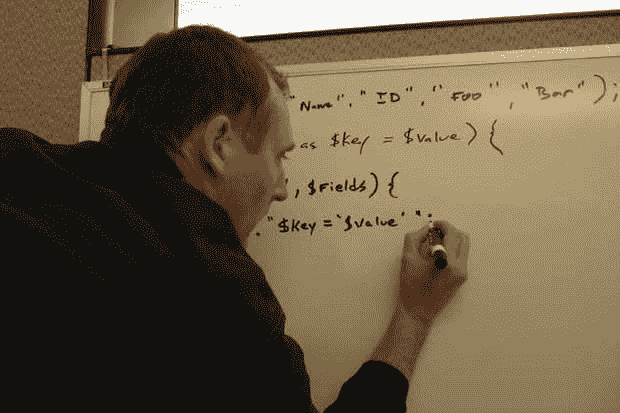 "Name", "ID", "Foo", "Bar");
as $key = $value) {
', $Fields) {
. "$key = '$value' ";